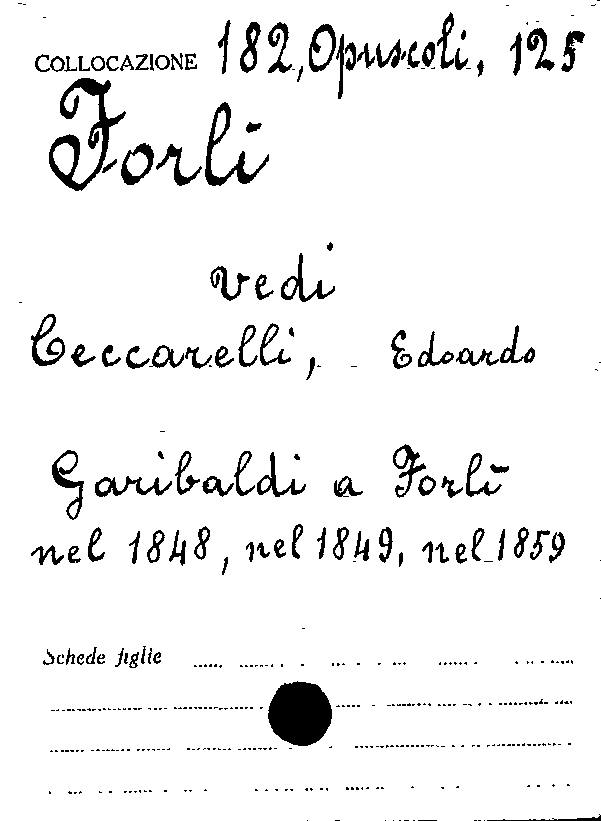 COLLOCAZIONE 182, Opuscoli, 125
Forlì
vedi
Ceccarelli, Edoardo
Garibaldi a Forlì
nel 1848, nel 1849, nel 1859
Schede figlie